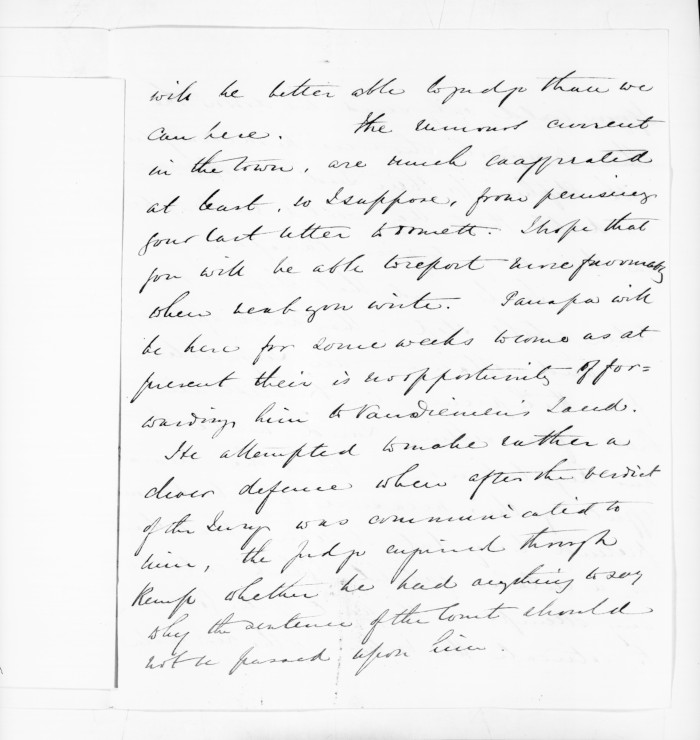 will be better able to judge than we
can here. The rumours current
in the town, are much exaggerated
at least, so I suppose, from perusing
your last letter to Domett. I hope that
you will be able to report more favorably
when next you write. Panapa will
be here for some weeks to come as at
present their is no opportunity of for=
warding him to Van Diemen's Land.
He attempted to make rather a
clever defence when after the verdict
of the Jury was communicated to
him, the judge enquired through
Kemp whether he had anything to say
why the sentence of the Court should
not be passed upon him.